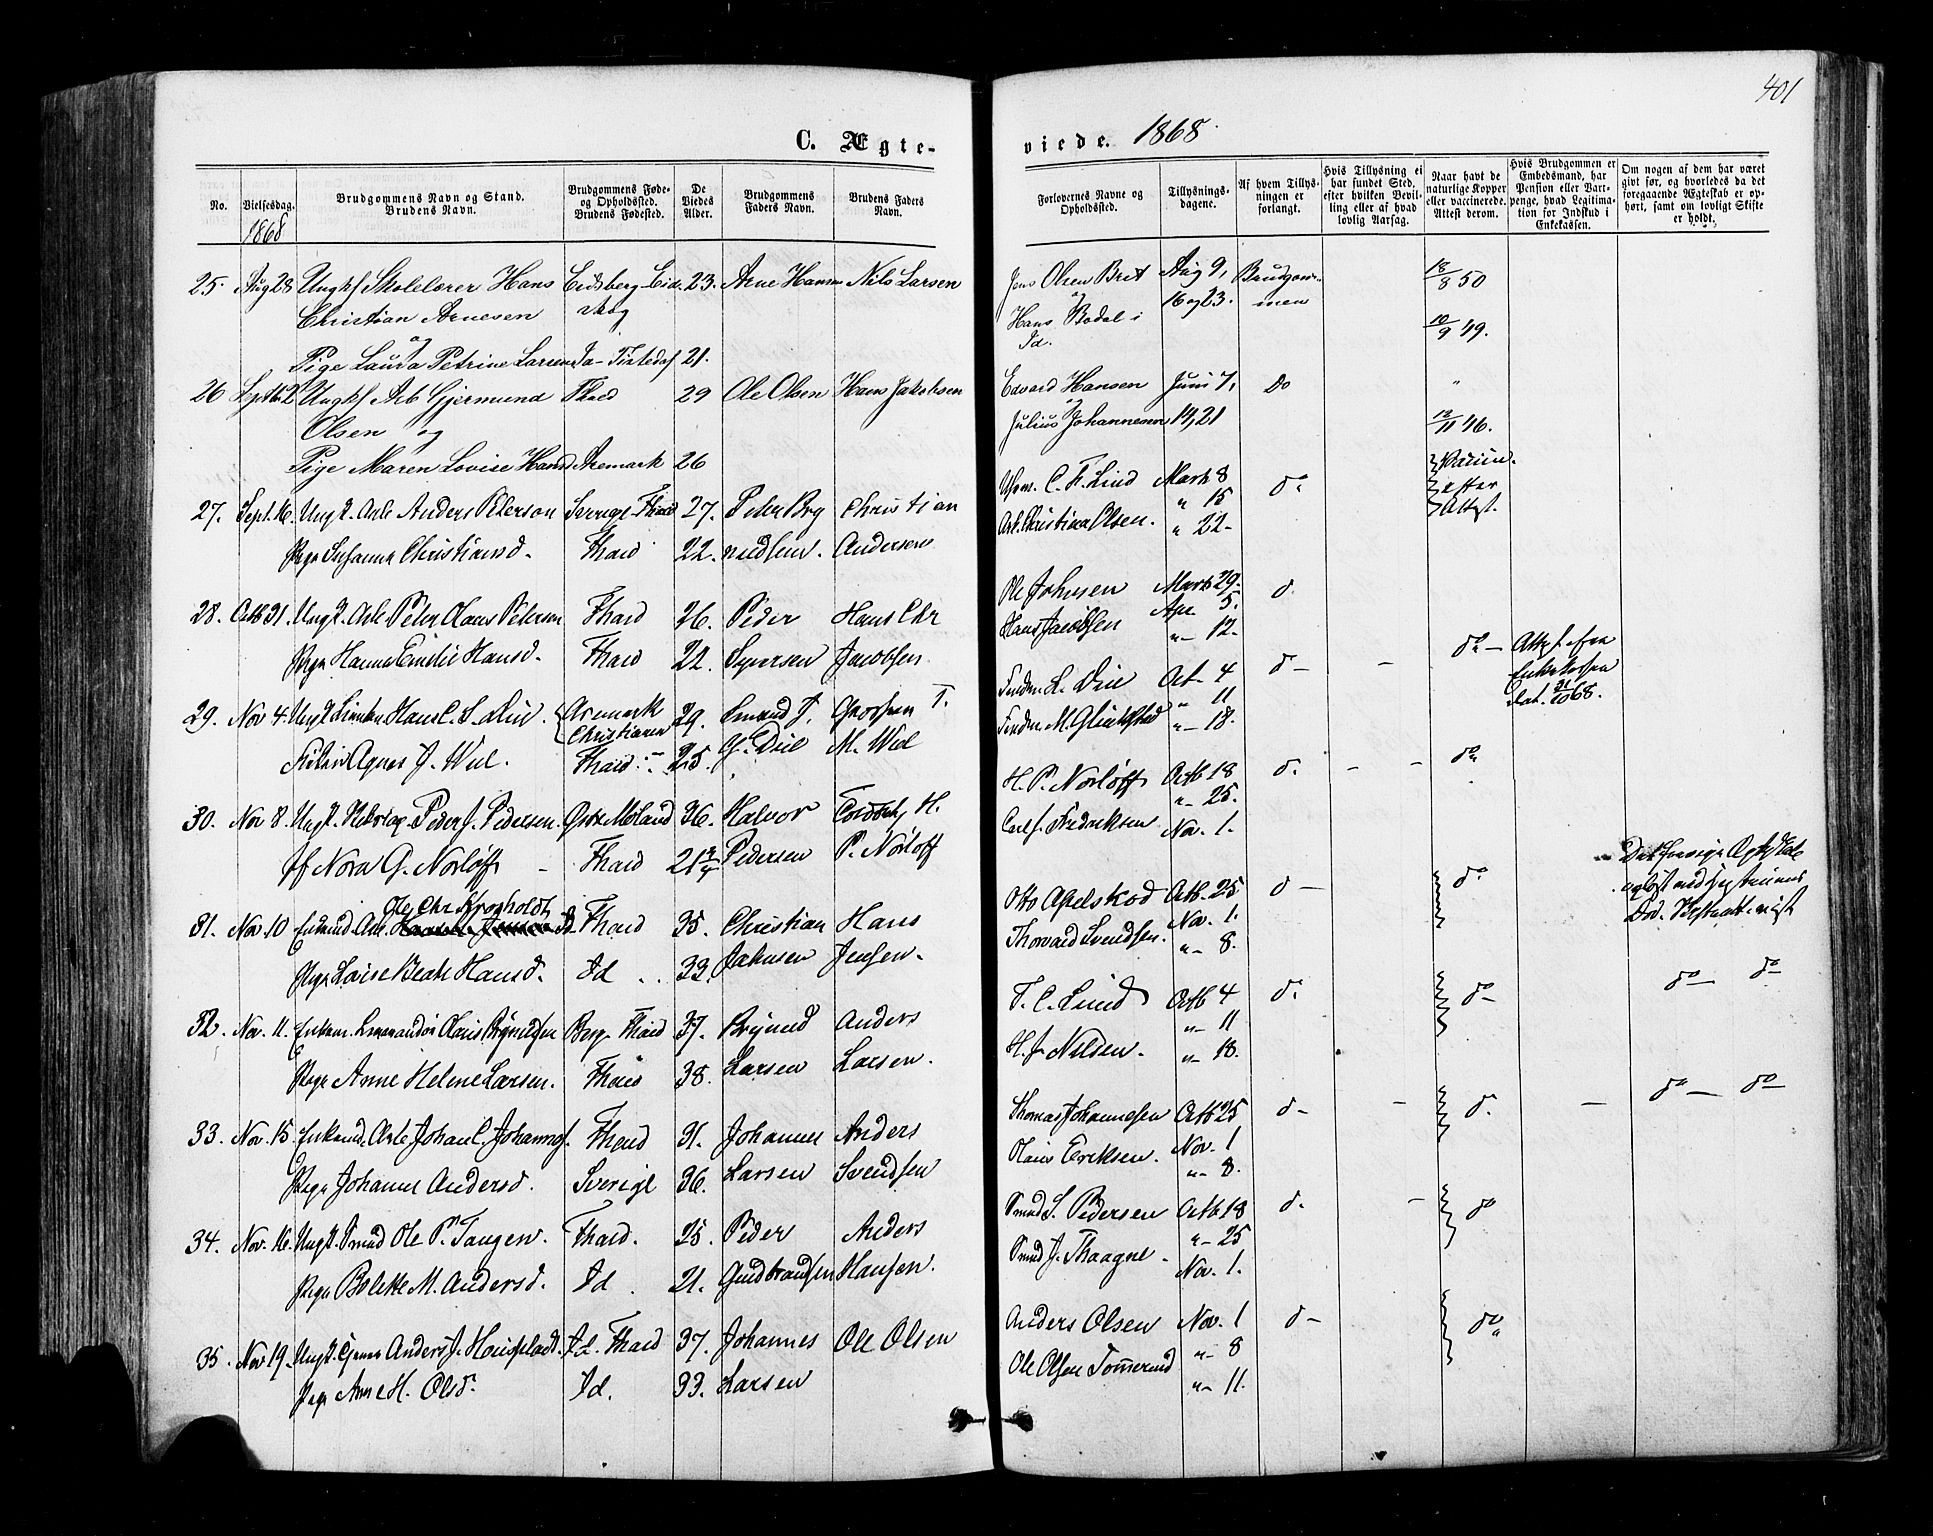 401
C. Ægte-
viede. 1868.
No.
Vielsesdag.
1868
Brudgommens Navn og Stand.
Brudens Navn.
Brudgommens Føde-
og Opholdssted.
Brudens Fødested.
De
Viedes
Alder.
Brudgommens
Faders Navn.
Brudens Faders
Navn.
Forlovernes Navne og
Opholdssted.
Tillysnings-
dagene.
Af hvem Tillys-
ningen er
forlangt.
Hvis Tillysning ei
har fundet Sted,
efter hvilken Bevil-
ling eller af hvad
lovlig Aarsag.
Naar havt de
naturlige Kopper
eller vaccinerede.
Attest derom.
Hvis Brudgommen er
Embedsmand, har
Pension eller Vart-
penge, hvad Legitima-
tion for Indskud i
Enkekassen.
Om nogen af dem har været
gift før, og hvorledes da det
foregaaende Ægteskab er op-
hørt, samt om lovligt Skifte
er holdt.
25. Aug 28 Ungkf Skolelærer Hans Eidsberg - Eid- 23. Arne Hansen Nils Larsen Jens Olsen Bret Aug 9, Brudgom- 18/8 50
Christian Arnesen skog og 16 og 23. men
og Hans Bødal i 10/9 49.
Pige Laura Petrine Larsen Id - Tistedal 21. Id.
26 Septb 2 Ungkf Arb Gjermund Thsed 29 Ole Olsen Hans Jakobsen Edvard Hansen Juni 7, Do "
Olsen og og Julius Johannesen 14, 21 12/11 46.
Pige Maren Lovise Hansd Aremark 26
27. Sept. 16. Ungk. Arb. Anders Peterson Sverige - Thsed 27. Peter Bry Christian C. F. Lind Marts 8 do Vaccin.
" 15 efter
Pige Susanna Christiansd. Thsed 22. nildsen. Andersen Arb. Christian Olsen. " 22 - Attest.
28. Octb 31. Ungk. Arb. Peter Olaus Peterson Thsed 26. Peder Hans Chr Ole Johnsen Marts 29. d.
Apr. 5.
Pige Hanna Emilie Hansd. Thsed 22. Syversen Jacobsen Hans Jacobsen "- 12.
29. Nov 4. Ungk Hans C. S. Due. Aremark 29. J. T. L. Due Oct. 4 d - - do - Attest fra
Christiania " 11 Enkekassen
Agnes J. Wiel. Thsed 25. G. Due M. Wiel M. Gluckstad "- 18. dat. 31/10 68.
30. Nov 8. Ungk. Peder J. Pedersen. Øvre Moland 36. Halvor H. H. P. Norløff Octb 18 d. - - do
"- 25.
Jf Nora G. Norløff - Thsed 21 3/4 Pedersen P. Norløff Carl J. Fredriksen Nov. 1.
Ole Chr Krogholdt
31. Nov. 10 Enkmd Arb. Thsed 35. Christian Hans Otto Apelskod Octb. 25 d - do Det forrige Ægteskab
Nov. 1. opløst ved Hustruens
Pige Laise Beate Hansd. Id 33. Jakusen Jensen. Thorvald Svendsen. "- 8. Død.
32. Nov. 11. Enkem. Olaus Brynildsen Berg Thsed 37. Brynild Anders T. C. Lund Octb 4 d. do - do - do -
"- 11
Pige Anne Helene Larsen. Thsed 38. Larsen Larsen. H. J. Nilsen. "- 18.
33. Nov. 15 Enkmd. Arb. Johan C. Johannes. Thsed 31. Johannes Anders Thomas Johannesen Octb 25 d - - d. - do - do -
Nov. 1
Pige Johanne Andersd. Sverige 36. Larsen Svendsen Olaus Eriksen. "- 8.
34. Nov. 16. Ungk. Smed Ole P. Tangen. Thsed. 25. Peder Anders Smed S. Pedersen Octb 18 d. - do
"- 25
Pige Bolette M. Andersd. Id. 21. Gudbrandsen Hansen. Smed J. Thaagne - Nov. 1.
35. Nov 19. Ungk. Anders J. Id. Thsed 37. Johannes Ole Olsen Anders Olsen Nov. 1 d - do
"- 8
Pige Anne H. Olsd. Id. 33. Larsen Ole Olsen Tommerud "- 11.